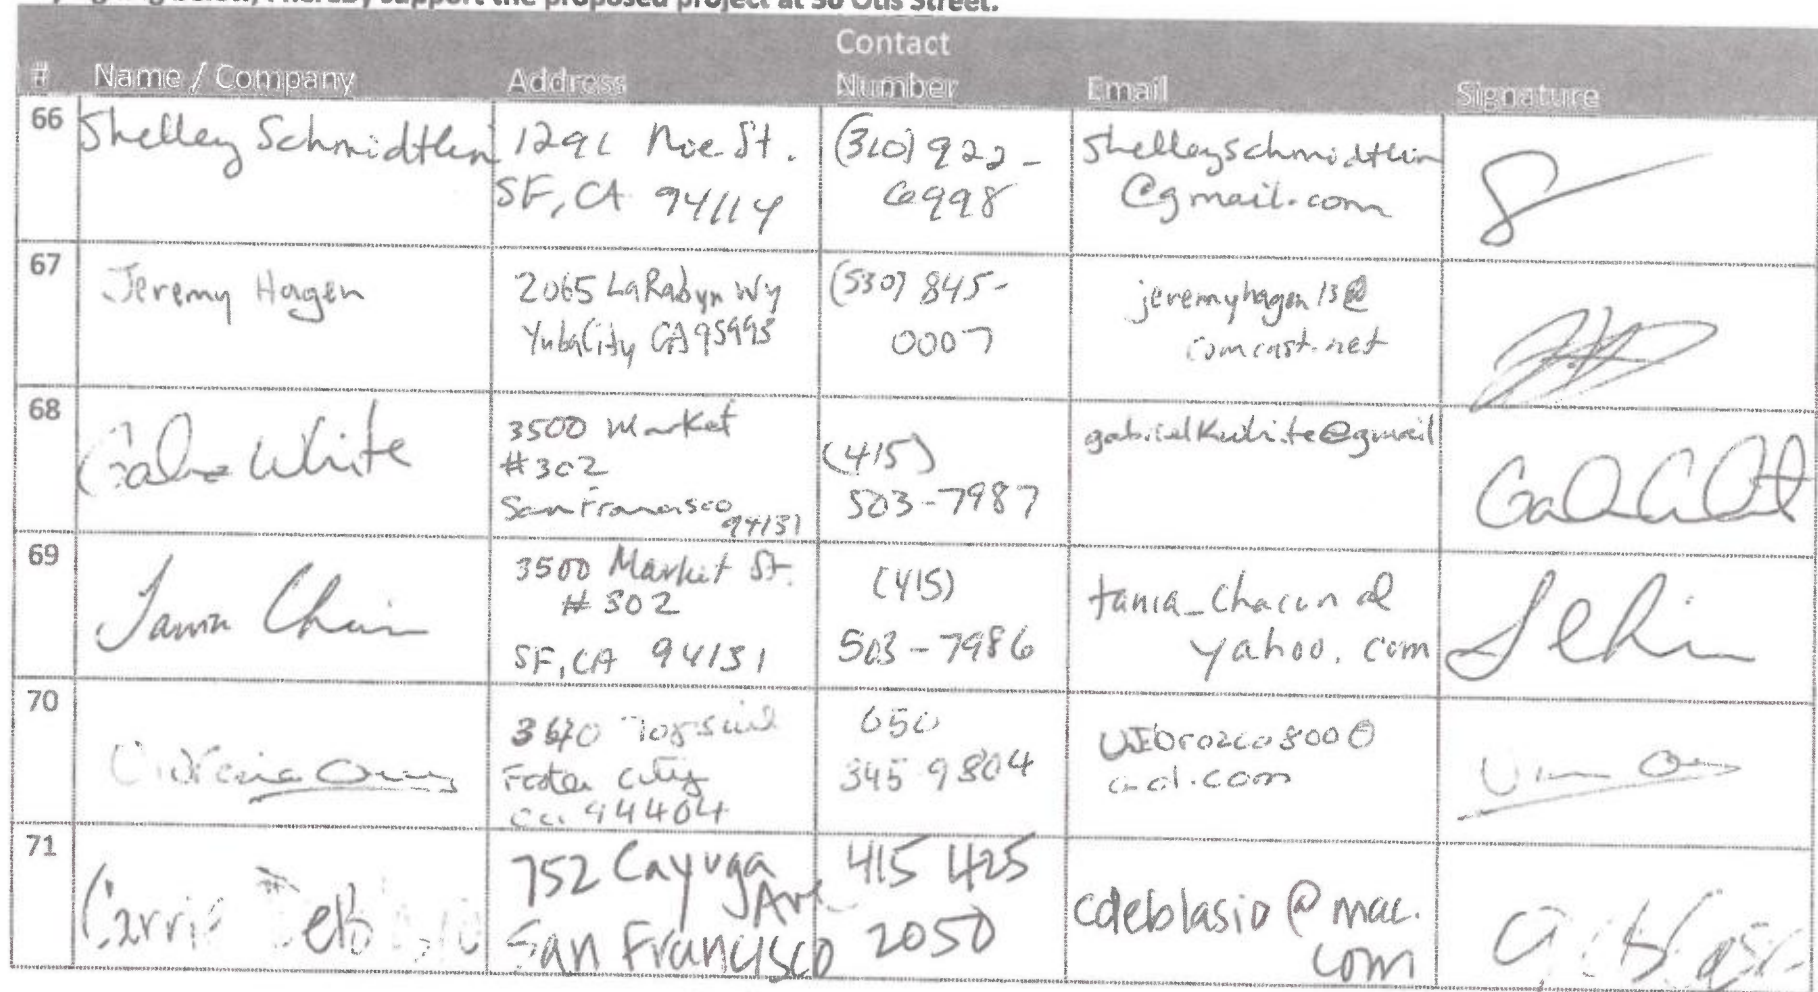 below, I hereby support the proposed project at 30 Otis Street.
# Name / Company Address Contact Number Email Signature
66 Shelley Schmidtlein 1291 Noe St. (310) 922-
SF, CA 94114 6998
shelleyschmidtlein
@gmail.com
67 Jeremy Hagen 2065 LaRadyn Wy (530) 845-
Yuba City CA 95993 0007
jeremyhagen13@
comcast.net
68 Gabe White 3500 Market
#302
San Francisco
94131
(415)
503-7987
gabrielkwhite@gmail
69 3500 Market St.
#302
SF, CA 94131
(415)
503-7986
tania_chacon@
yahoo.com
70 Foster City
ca. 94404
650
345 9804
aol.com
71 Carrie DeBlasio 752 Cayuga
Ave
San Francisco
415 425
2050
cdeblasio@mac.
com